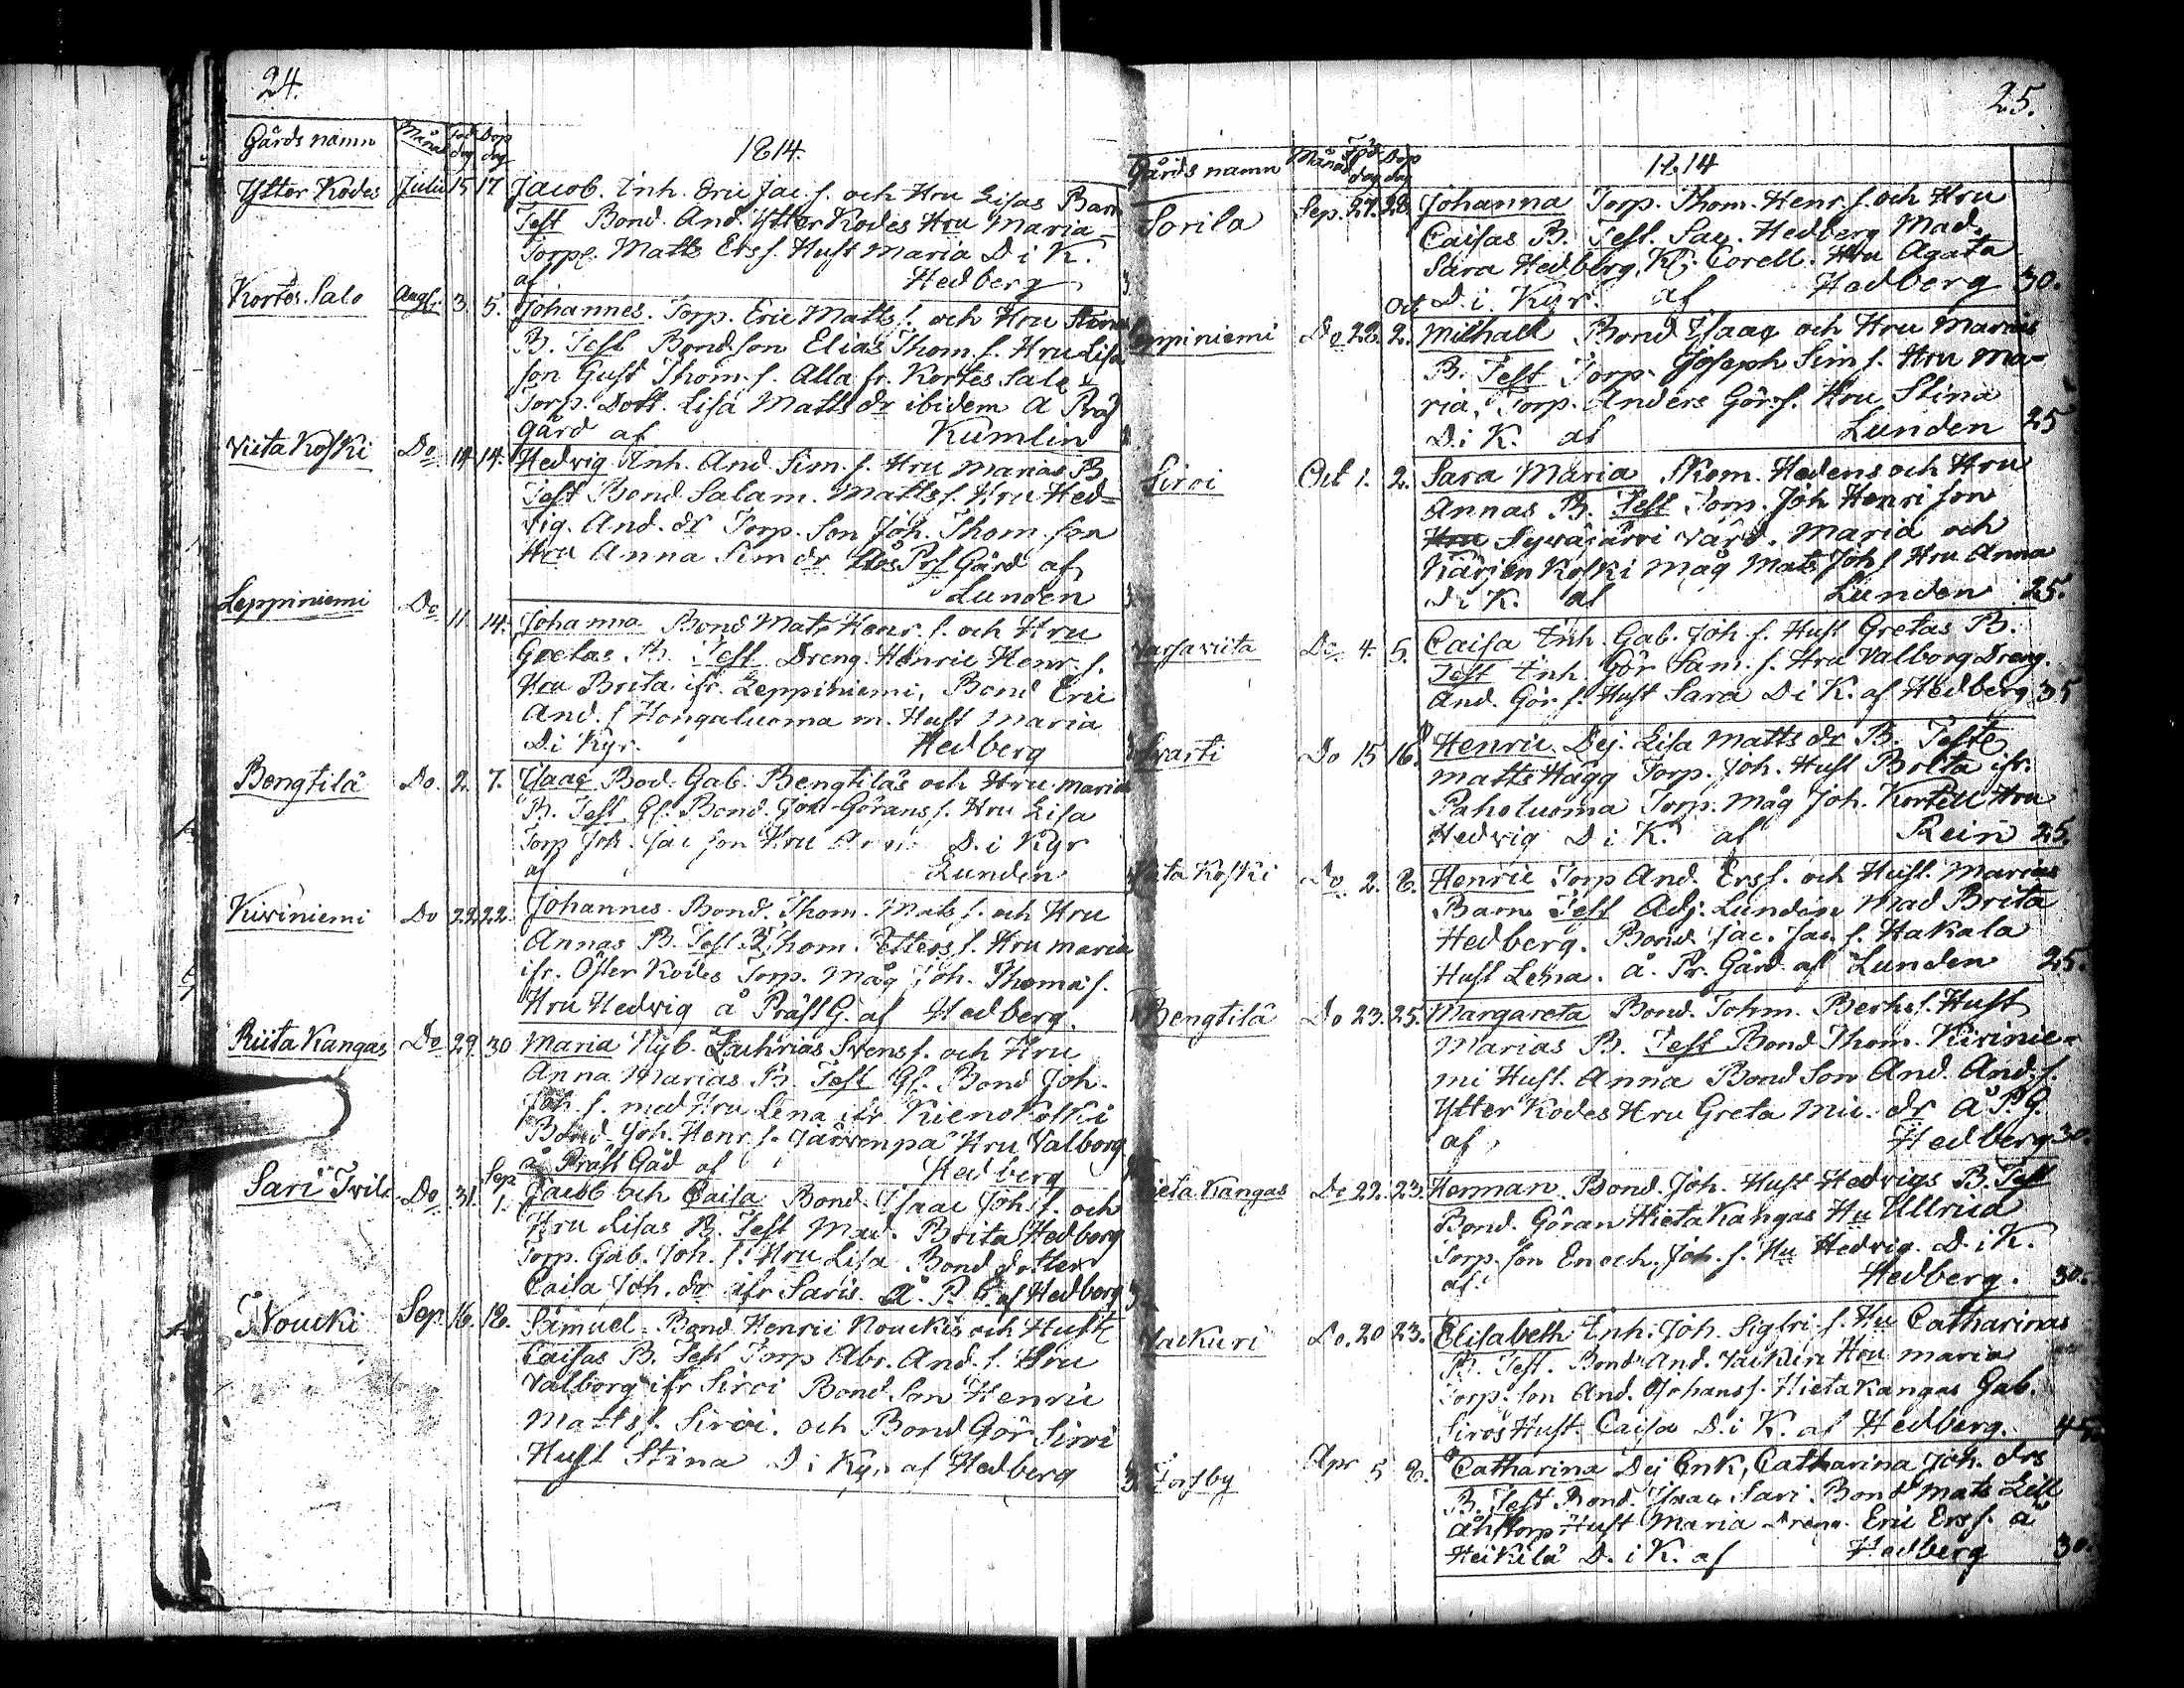 24.
Gårds namn Månad Föd dag Dop dag 1814.
Ytter Kodes Julii 15 17 Jacob. Inh. Eric Jac. s. och Hru Lisas Barn
Test Bond. And. Ytter Kodes Hru Maria
Torp. Matts Ers s. Hust Maria D i K.
af Hedberg
Kortes Salo Augst. 3. 5. Johannes. Torp. Eric Matts s. och Hru Stinas
B. Test Bondson Elias Thom. s. Hru Lisa
son Gust Thom. s. Alla fr. Kortes Salo
Torp. Dott. Lisa Matts dr ibidem a Präs
gård af Kumlin
Viita Koski Do 14 14. Hedvig Inh. And. Sim. s. Hru Marias B
Test Bond. Salam. Matts s. Hru Hed-
vig. And. dr Torp. Son Joh. Thom. son
Hru Anna Sim dr Prs Gård af
Lunden
Leppiniemi Do 11 14. Johanna Bond Mats Henr. s. och Hru
Gretas B. Test Dreng. Henric Henr. s.
Hru Brita ifr. Leppiniemi, Bond Eric
And. s Hongaluoma m. Hust Maria
D i Kyr. Hedberg
Bengtilä Do. 2. 7. Isaac Bod. Gab. Bengtiläs och Hru Maria
B. Test Gl. Bond. Görans s. Hru Lisa
Torp Joh. Jac son Hru D. i Kyr
af Lunden
Kiviniemi Do 22. 22. Johannes. Bond. Thom. Mats s. och Hru
Annas B. Test. Thom. Petters s. Hru Maria
ifr. Öfter Kodes Torp. Måg Joh. Thomas s.
Hru Hedvig å Präst G. af Hedberg.
Riita Kangas Do 29. 30 Maria Nyb. Zachrias Svens s. och Hru
Anna Marias B. Test Gl. Bond Joh.
Joh. s. med Hru Lena ifr Kienokoski
Bond. Joh. Henr. s. Järvenpä Hru Valborg
å Präst Gåd af Hedberg
Sari Do 31. Sep 1. Jacob och Caisa Bond. Isaac Joh. s. och
Hru Lisas B. Test Mad. Brita Hedberg
Torp. Gab. Joh. s. Hru Lisa Bond dotter
Caisa Joh. dr ifr Saris. å. P. G. af Hedberg
Noucki Sep. 16. 18. Samuel. Bond Henric Nouckis och Hust
Caisas B. Test Torp Abr. And. s. Hru
Valborg ifr Siroi Bond son Henric
Matts s. Siroi. och Bond Gör Siroi
Hust Stina D i Kyr af Hedberg
25.
Gårds namn Månad Föd dag Dop dag 1814
Sorila Sep. 27. 28. Johanna Torp. Thom. Henr. s. och Hru
Caisas B. Test. Sac. Hedberg Mad.
Sara Hedberg, Kl. Corell. Hru Agata
D. i Kyr. af Hedberg 30.
Leppiniemi Do 28. Oct 2. Michael Bond Isaac och Hru Marias
B. Test Torp. Joseph Sim s. Hru Ma-
ria, Torp. Anders Görs. s. Hru Stina
D. i K. af Lunden 25
Siroi Oct 1. 2. Sara Maria Skom. Hedens och Hru
Annas B. Test Torp. Joh Henri son
Syväjärvi värd. Maria och
Karjenkoski Måg Mats Joh s Hru Anna
D i K. af Lunden 25.
Do 4. 5. Caisa Inh. Gab. Joh. s. Hust Gretas B.
Test Inh. Gör Sam. s. Hru Valborg Dreng.
And. Gör. s. Hust Sara D i K. af Hedberg 35
Svarti Do 15 16. Henric Dej. Lisa Matts dr B. Teste
Matts Hägg Torp. Joh. Hust Brita ifr.
Paholuoma Torp. Måg Joh. Kortell Hru
Hedvig D i K. af Rein 25.
Viita Koski Do. 2. 8. Henric Torp And. Ers s. och Hust. Marias
Barn Test Adj. Lunden Mad Brita
Hedberg. Bond. Jac. Jac. s. Hakala
Hust Lena. å. Pr. Gård af Lunden 25.
Bengtilä Do 23. 25. Margareta Bond. Johm. Berhs s. Hust
Marias B. Test Bond Thom. Kivinie-
mi Hust. Anna Bond Son And. And. s.
Ytter Kodes Hru Greta Mic. dr å P. G.
af Hedberg 30.
Hieta Kangas Do 22. 23. Herman. Bond. Joh. Hust Hedvigs B. Test
Bond. Göran Hieta Kangas Hu Ullrica
Torp. son Enoch. Joh. s. Hu Hedvig. D. i K.
af. Hedberg. 30.
Jackuri Do. 20 23. Elisabeth Inh. Joh. Sigfri. s. Hu Catharinas
B. Test. Bond And. Jackuri Hru Maria
Torp. son And. Johans s. Hietakangas Gab.
Siros Hust. Caisa D. i K. af Hedberg. 45
Forsby Apr 5 8. Catharina Dej Enk, Catharina Joh. drs
B. Test Bond. Isaac Sari. Bond Mats Lill
åhstorp Hust Maria Dreng. Eric Ers s. a
Heikilä D. i K. af Hedberg 30.